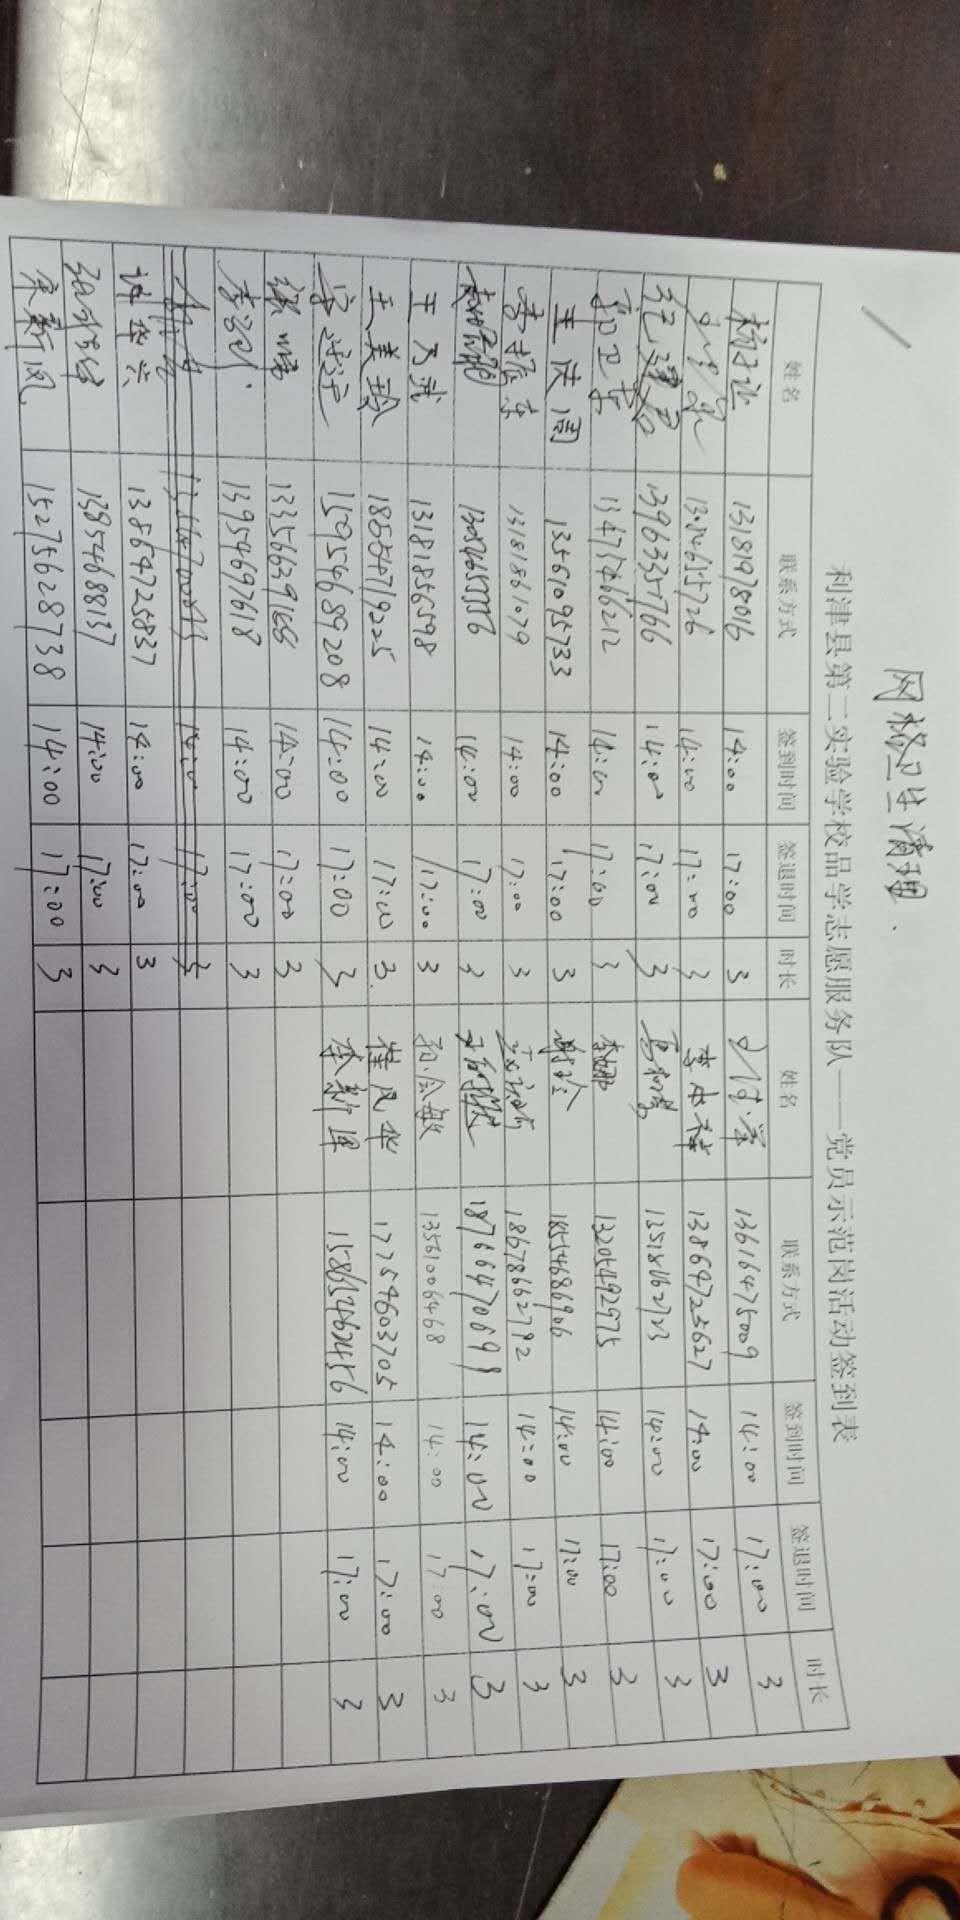 网格卫生清理.
利津县第二实验学校品学志愿服务队——党员示范岗活动签到表
姓名 联系方式 签到时间 签退时间 时长 姓名 联系方式 签到时间 签退时间 时长
13181978016 14:00 17:00 3 13616475009 14:00 17:00 3
14:00 17:00 3 13864725627 14:00 17:00 3
纪建君 13963355766 14:00 17:00 3 14:00 17:00 3
郭卫东 13475466212 14:00 17:00 3 李娜 13205492975 14:00 17:00 3
王庆周 13561095733 14:00 17:00 3 18554686906 14:00 17:00 3
李振东 13181861079 14:00 17:00 3 18678662792 14:00 17:00 3
14:00 17:00 3 18766470699 14:00 17:00 3
王乃武 13181856598 14:00 17:00 3 孙会敏 13561006468 14:00 17:00 3
王美玲 18554719225 14:00 17:00 3 崔凤华 17754603705 14:00 17:00 3
15954689208 14:00 17:00 3 李新军 15865462456 14:00 17:00 3
13356639166 14:00 17:00 3
13954697618 14:00 17:00 3
14:00 17:00 3
许华兴 13864725837 14:00 17:00 3
13954688137 14:00 17:00 3
宋新凤 15275628738 14:00 17:00 3